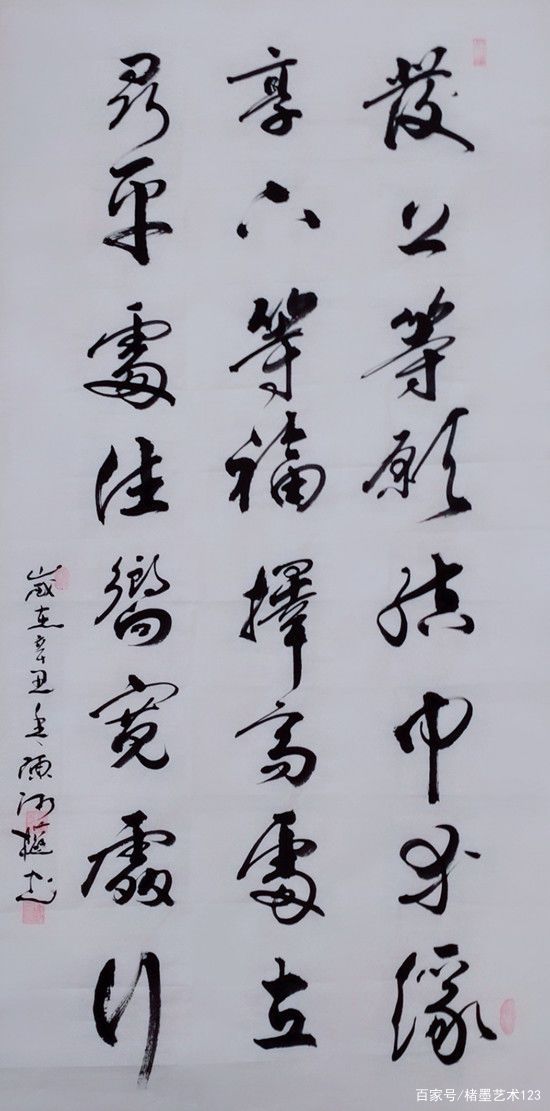 發上等願結中等緣
享下等福擇高處立
尋平處住嚮寬處行
歲在辛丑年
百家号/楮墨艺术123